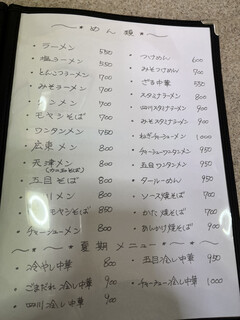 めん類
ラーメン 550
塩ラーメン 550
とんこつラーメン 700
みそラーメン 700
メン 700
モヤシそば 700
ワンタンメン 750
広東メン 800
天津メン 800
五目そば 800
川メン 800
モヤシそば 850
チャーシューメン 900
つけめん 600
みそつけめん 700
ざる中華
スタミナラーメン 800
四川スタミナラーメン 900
みそスタミナラーメン 900
ねぎチャーシューメン 1000
チャーシューワンタンメン
五目ワンタンメン 950
タールーメン 950
ソース焼そば 700
かた焼そば 700
あんかけ焼そば 900
夏期メニュー
冷やし中華 800
ごまだれ冷し中華 900
四川冷し中華 900
五目冷し中華 950
チャーシュー冷し中華 1000